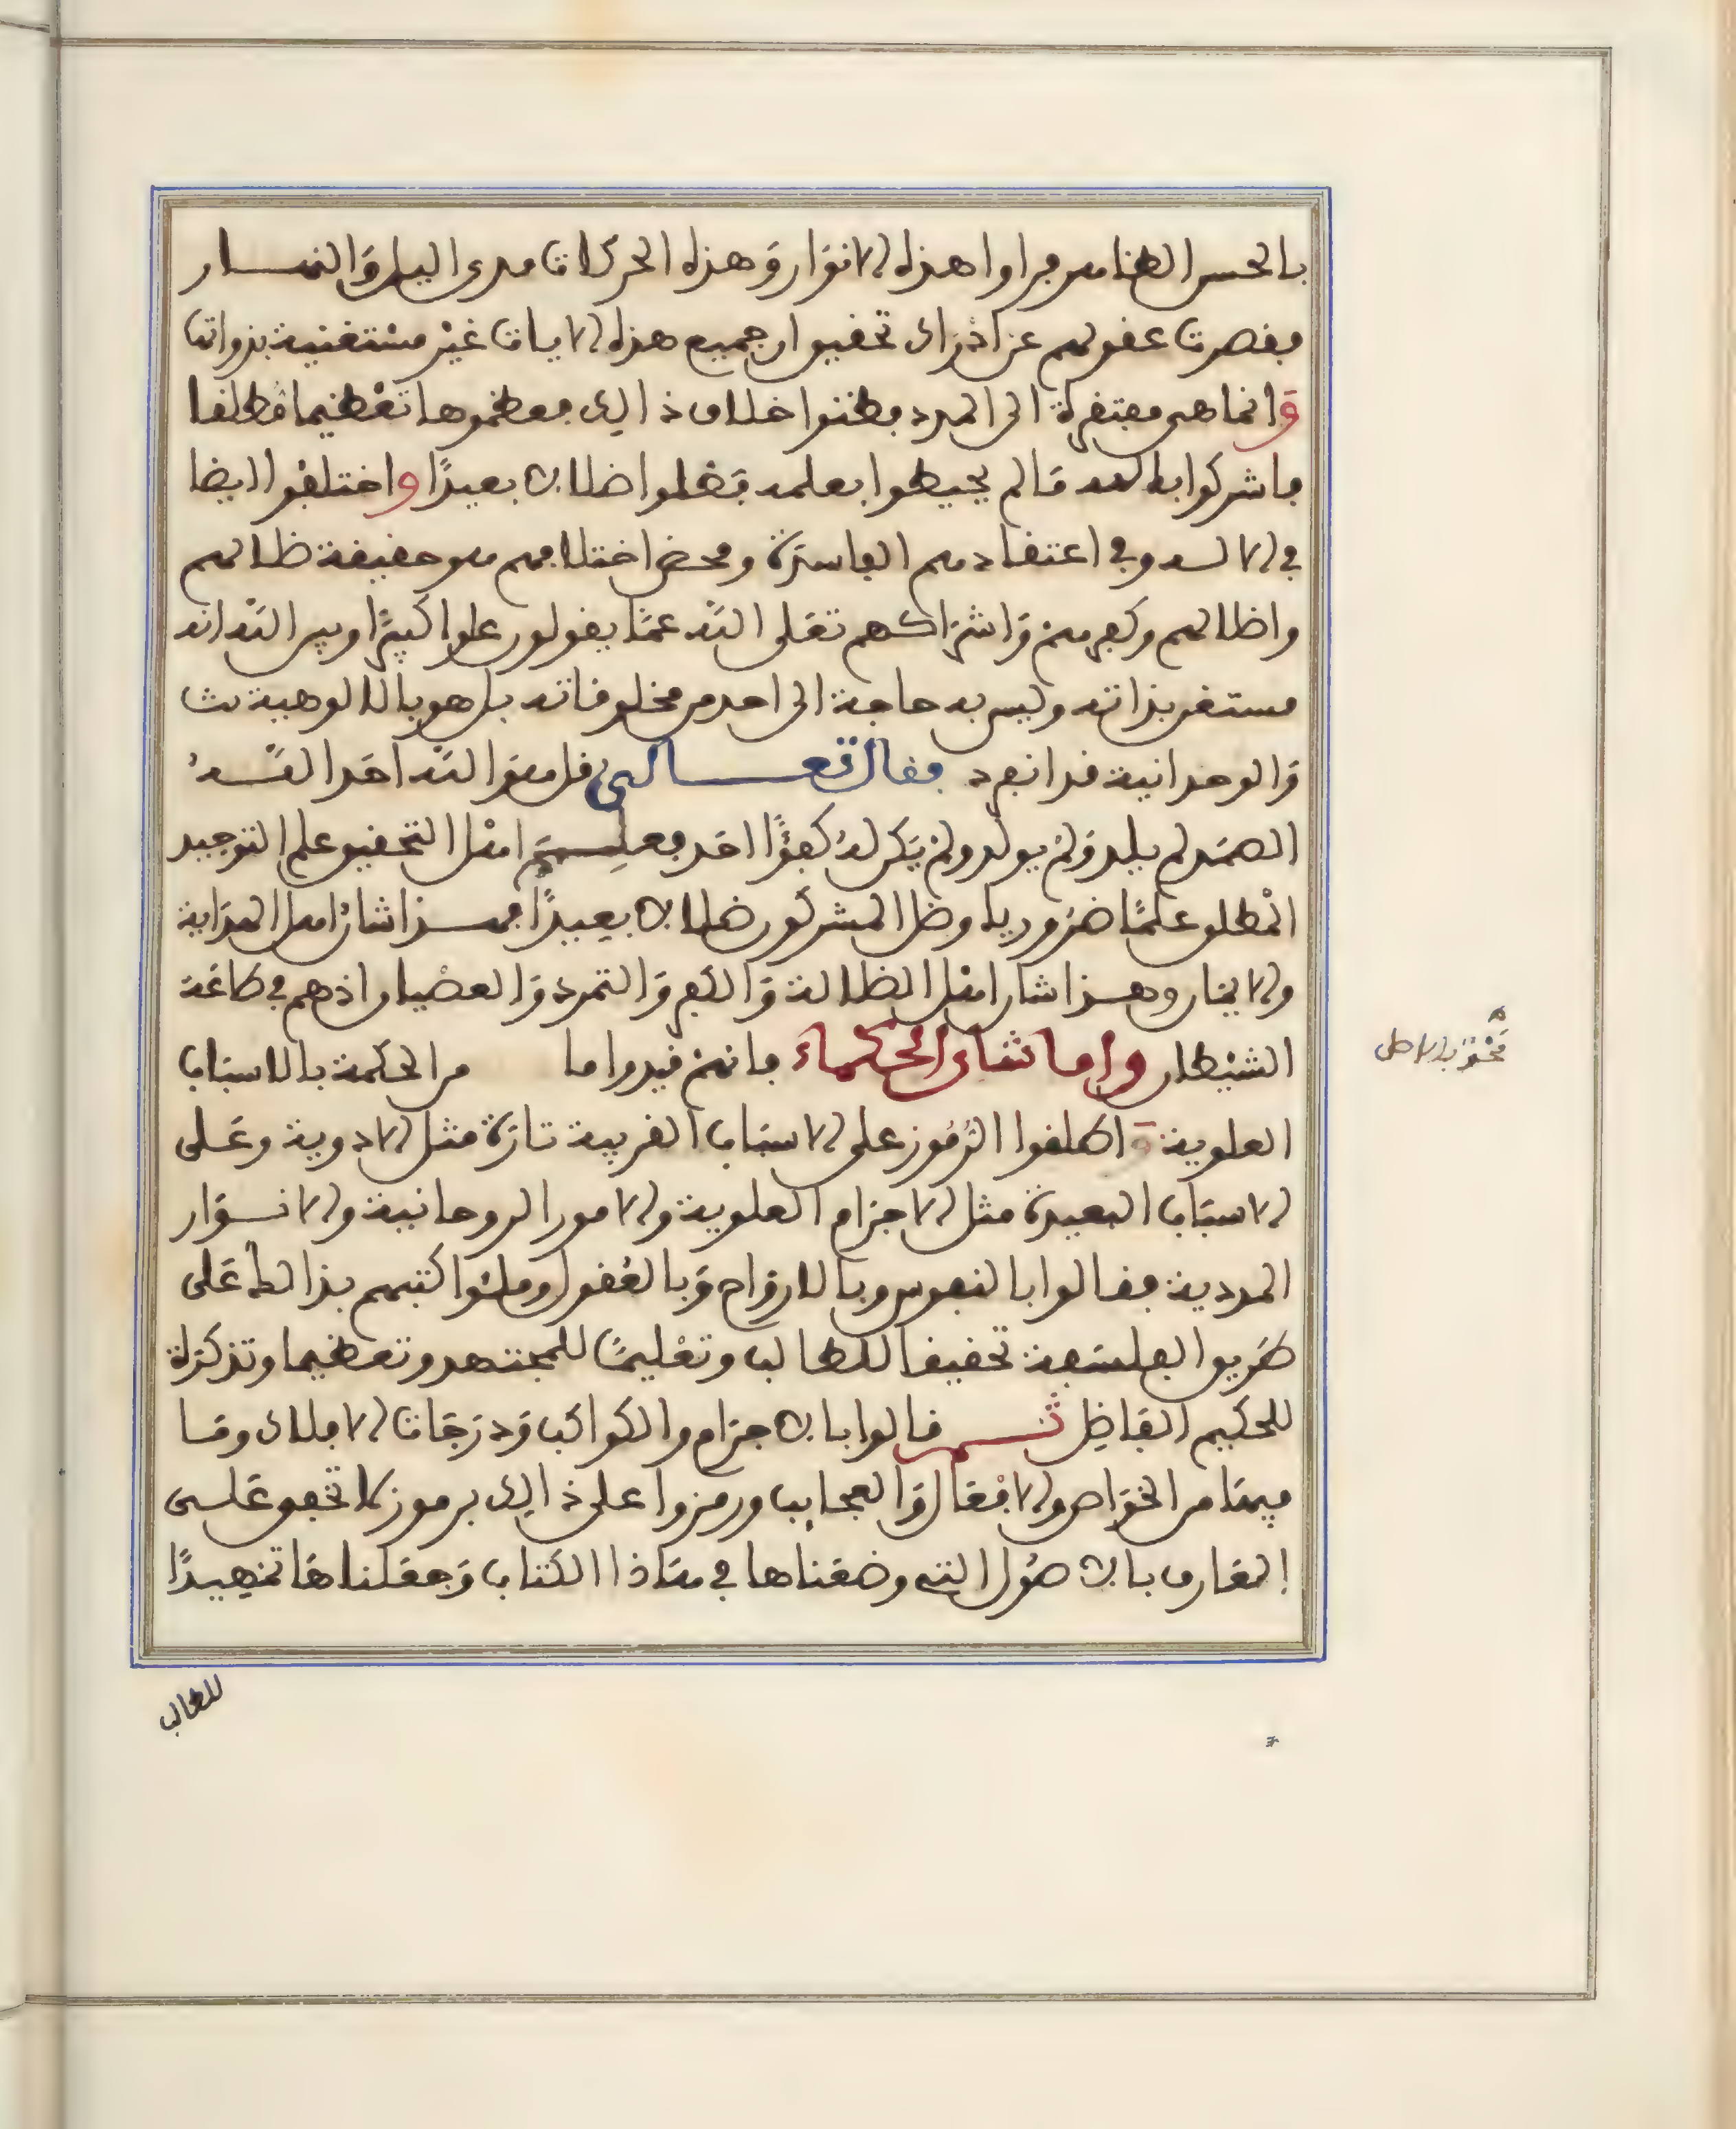 بالحس الظاهر فراوا هذه الانوار وهذه الحركات مدى اليل والنهار
فقصرت عقولهم عن ادراك تحقيق ان جميع هذه الايات غير مستغنية بذواتها
وانما هي مفتقرة الى المدد فظنوا خلاف ذالك فعظموها تعظيما مطلقا
فاشركوا بالله مالم يحيطوا بعلمه فضلوا ضلالا بعيدًا واختلفوا ايضا
في الاله وفي اعتقادهم الفاسدة ومحض اختلافهم هو حقيقة ظلالهم
واظلالهم وكفرهم واشراكهم تعلى الله عما يقولون علوا كبيرًا وبين الله انه
مستغن بذاته وليس به حاجة الى احد من مخلوقاته بل هو بالالوهية
والوحدانية قد انفرد فقال تعالى قل هو الله احد الله
الصمد لم يلد ولم يولد ولم يكن له كفؤًا احد فعلم اهل التحقيق علم التوحيد
المطلق علمًا ضروريا وضل المشركون ضلالا بعيدًا فهذا شان اهل الهداية
والايمان وهذا شان اهل الظلالة والكفر والتمرد والعصيان اذ هم في طاعة
الشيطان واما شان الحكماء فانهم قيدوا ما من الحكمة بالاسباب
العلوية واطلقوا الرموز على الاسباب القريبة تارة مثل الادوية وعلى
الاسباب البعيدة مثل الاجرام العلوية والامور الروحانية والانوار
المددية فقالوا بالنفوس وبالارواح وبالعقول وملئوا كتبهم بذالك على
طريق الفلسفة تحقيقا للطالب وتعليمًا للمجتهد وتعظيما وتذكرة
للحكيم الفاضل ثم قالوا بالاجرام والكواكب ودرجات الافلاك وما
فيها من الخواص والافعال والعجايب ورمزوا على ذالك برموز لا تخفى على
العارف بالاصول التي وضعناها في هاذا الكتاب وجعلناها تمهيدًا
للطالب
محو بالاصل